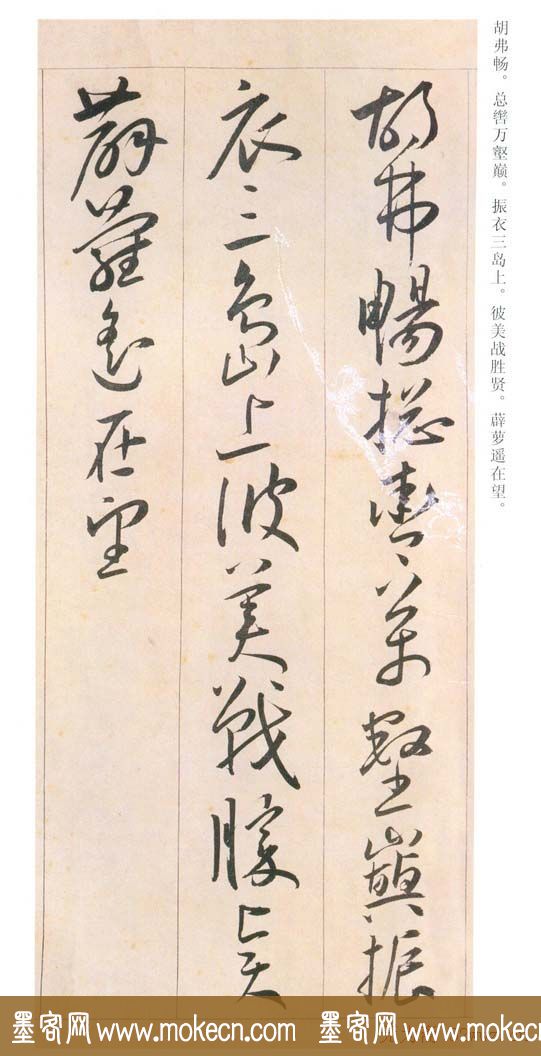 胡弗畅。总辔万壑巅。振衣三岛上。彼美战胜贤。薜萝遥在望。
胡弗暢揔轡萬壑巔振
衣三島上彼美戰勝賢
薜蘿遥在望
墨客网 www.mokecn.com 墨客网 www.mokecn.com